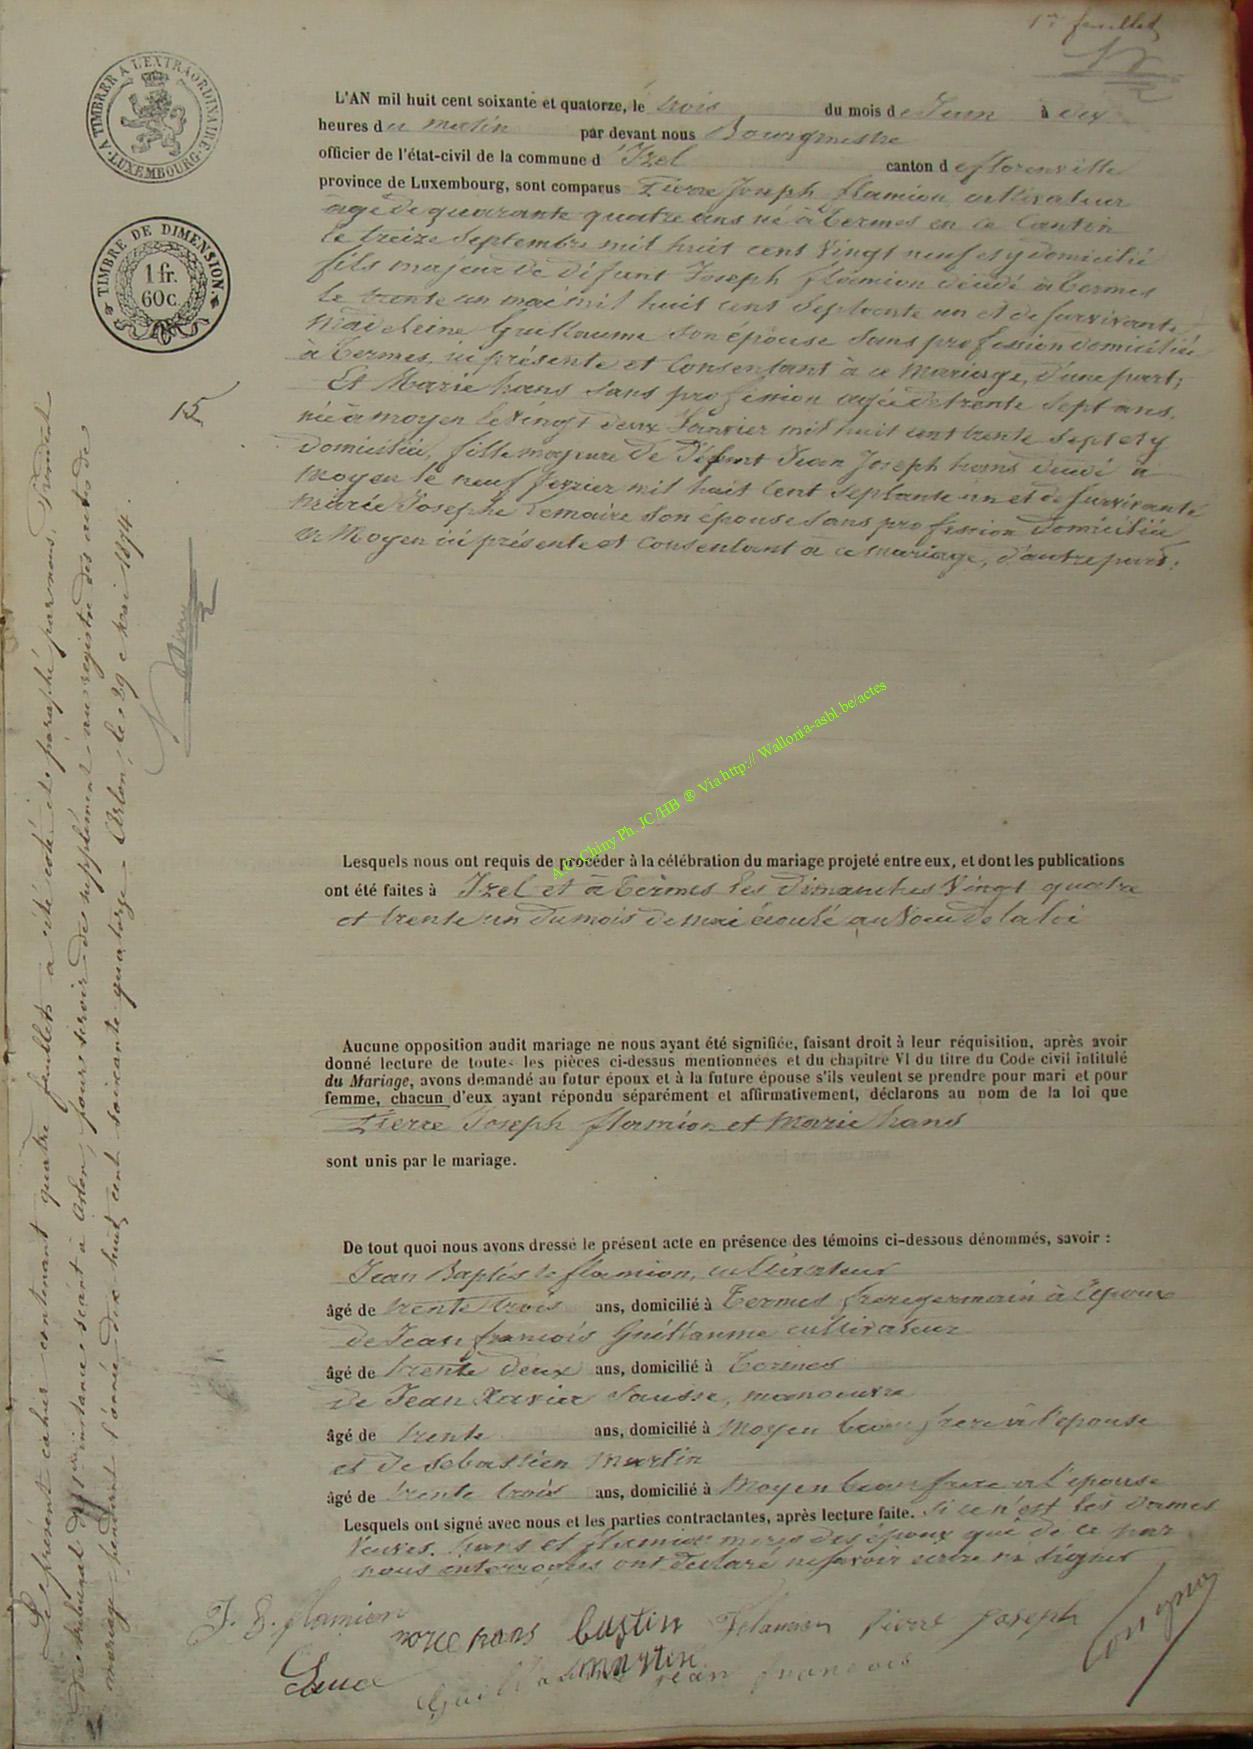 1er feuillet
A TIMBRER A L'EXTRAORDINAIRE
LUXEMBOURG
TIMBRE DE DIMENSION
1 fr.
60 c.
15
L'AN mil huit cent soixante et quatorze, le trois du mois de Juin à dix
heures du matin par devant nous Bourgmestre
officier de l'état-civil de la commune d'Izel canton de florenville
province de Luxembourg, sont comparus Pierre Joseph flamion, cultivateur
agé de quarante quatre ans né à Termes en ce Canton
le treize Septembre mil huit cent vingt neuf et y domicilié
fils majeur de défunt Joseph flamion décédé à Termes
le trente un mai mil huit cent Septante un et de survivante
Madeleine Guillaume son épouse sans profession domiciliée
à Termes, ici présente et Consentant à ce Mariage, d'une part;
Et Marie hans sans profession agée de trente sept ans,
née à moyen le vingt deux Janvier mil huit cent trente sept et y
domiciliée, fille majeure de défunt Jean Joseph hans décédé à
Moyen le neuf fevrier mil huit cent Septante un et de survivante
Marie Josephe Lemaire son épouse sans profession domiciliée
à Moyen ici présente et consentant à ce mariage, d'autre part;
Le présent cahier contenant quatre feuillets a été coté et paraphé par nous, Président
du tribunal de 1ère instance séant à Arlon, pour servir de supplément au registre des actes de
mariage pendant l'année dix huit cent soixante quatorze - Arlon, le 29 Mai 1874.
AC Chiny Ph. JC/HB ® Via http:// Wallonia-asbl.be/actes
Lesquels nous ont requis de procéder à la célébration du mariage projeté entre eux, et dont les publications
ont été faites à Izel et à Termes les Dimanches Vingt quatre
et trente un du mois de mai écoulé au voeu de la loi
Aucune opposition audit mariage ne nous ayant été signifiée, faisant droit à leur réquisition, après avoir
donné lecture de toutes les pièces ci-dessus mentionnées et du chapitre VI du titre du Code civil intitulé
du Mariage, avons demandé au futur époux et à la future épouse s'ils veulent se prendre pour mari et pour
femme, chacun d'eux ayant répondu séparément et affirmativement, déclarons au nom de la loi que
Pierre Joseph flamion et Marie hans
sont unis par le mariage.
De tout quoi nous avons dressé le présent acte en présence des témoins ci-dessous dénommés, savoir :
Jean Baptiste flamion, cultivateur
âgé de trente trois ans, domicilié à Termes frere germain à l'epoux
de Jean françois Guillaume cultivateur
âgé de trente deux ans, domicilié à Termes
de Jean Xavier Sausse, manoeuvre
âgé de trente ans, domicilié à Moyen beau frere à l'epouse
et de Sebastien Martin
âgé de trente trois ans, domicilié à Moyen beau frere à l'epouse
Lesquels ont signé avec nous et les parties contractantes, après lecture faite. Si ce n'est les dames
veuves hans et flamion meres des époux qui de ce par
nous interrogées ont déclaré ne savoir ecrire ni signer
J. B. flamion
marie hans bastin flamion pierre joseph
martin
Guillaume jean francois